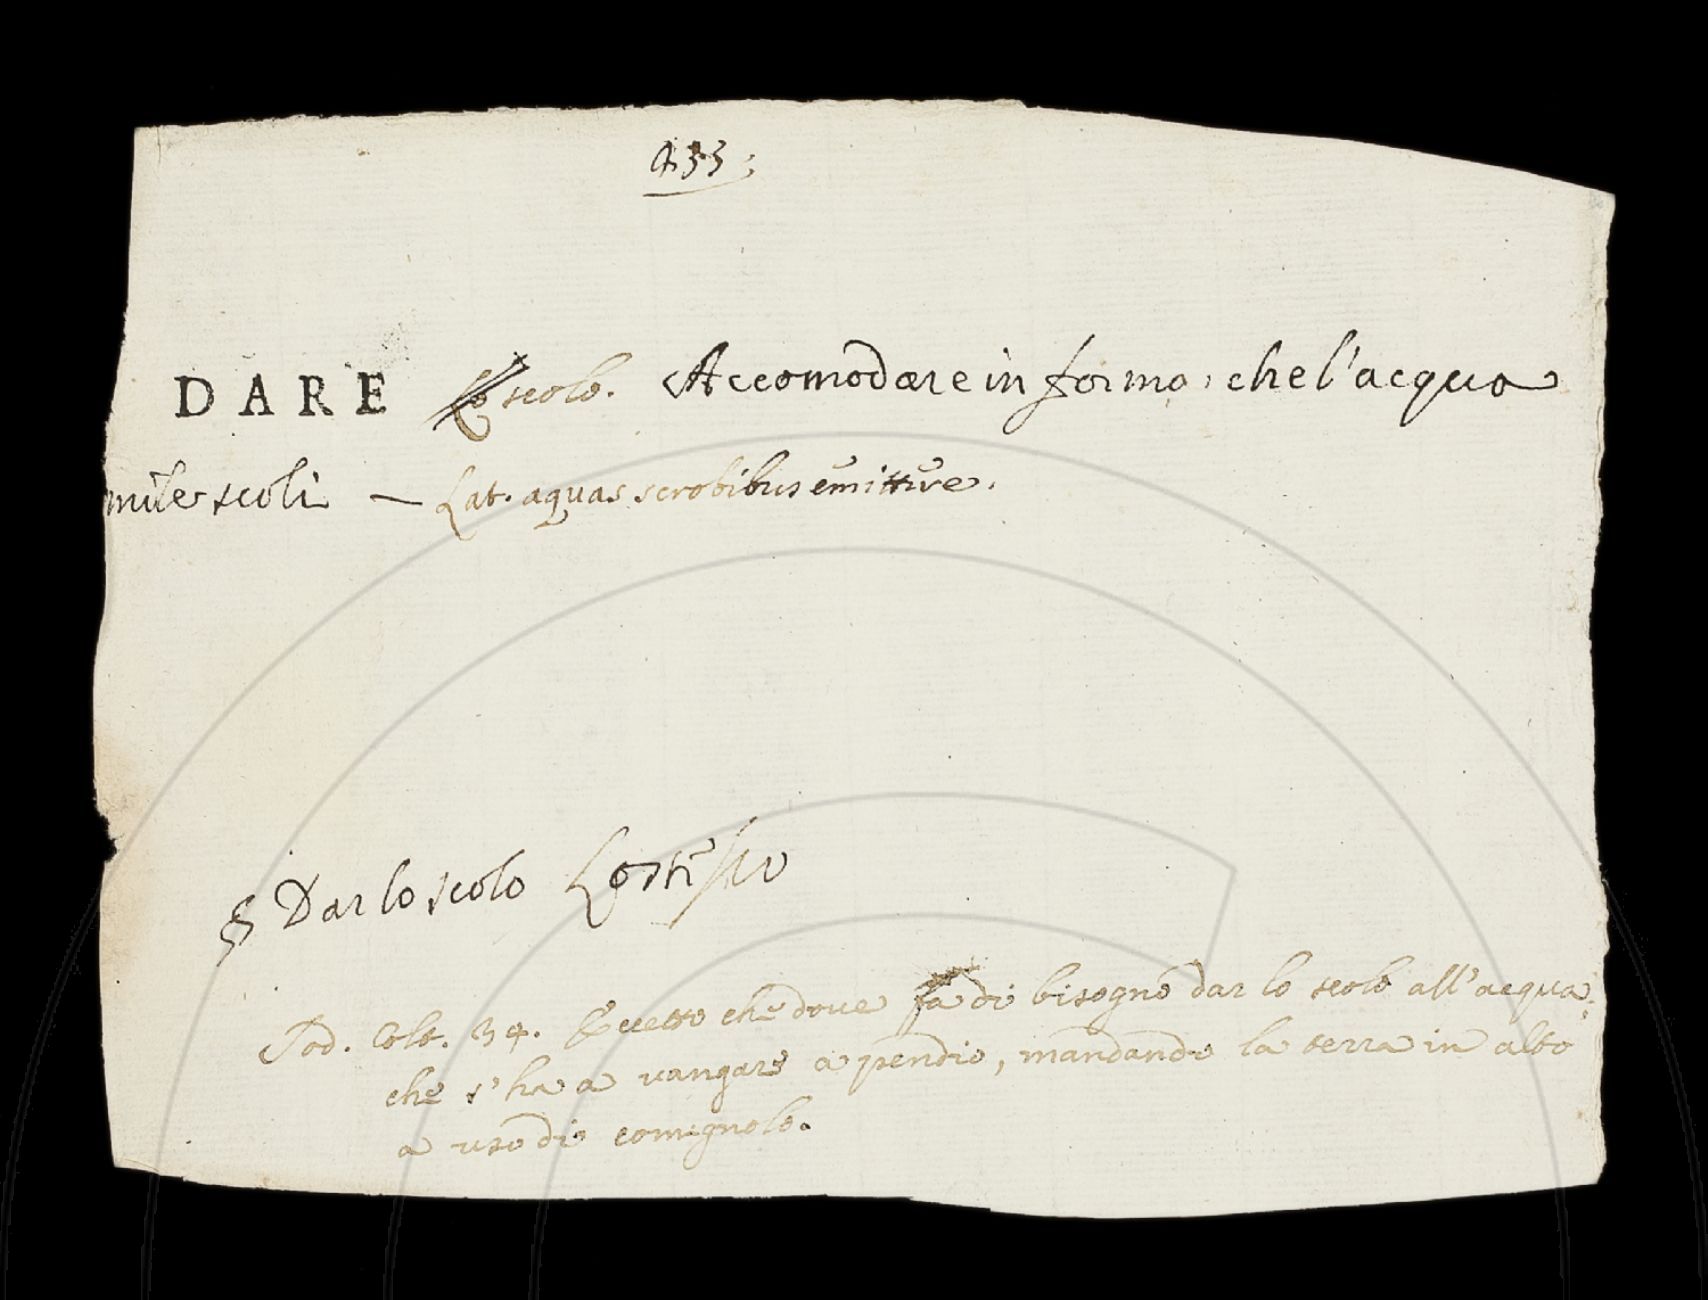 433;
DARE scolo. Accomodare in forma, che l'acqua
scoli — Lat. aquas scrobibus emittere.
§ Dar lo scolo
Sod. Colt. 34. che dove fa di bisogno dar lo scolo all'acqua,
che s'ha a vangare a pendio, mandando la terra in alto
a uso di comignolo.